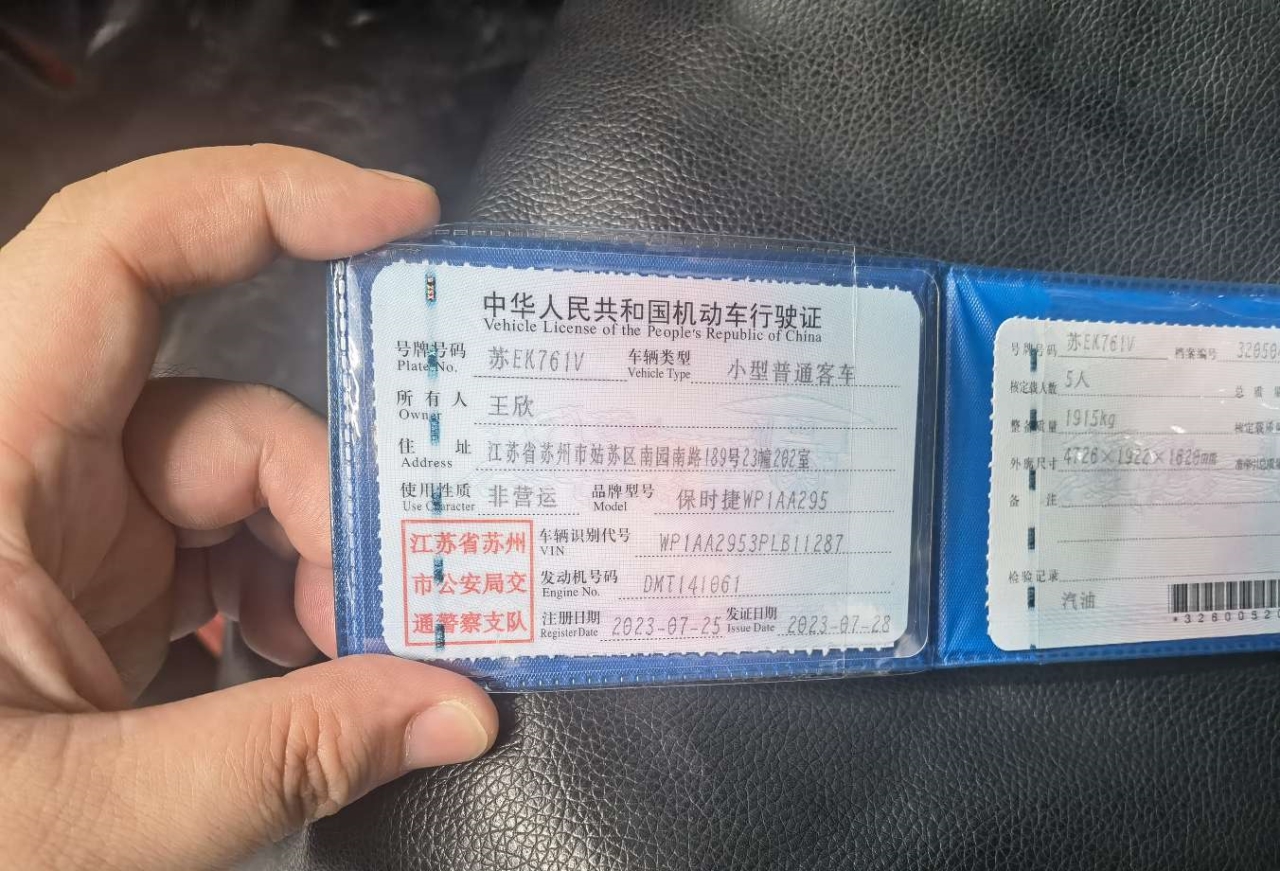 中华人民共和国机动车行驶证
Vehicle License of the People's Republic of China
号牌号码 苏EK761V 车辆类型 小型普通客车
Plate No. Vehicle Type
所有人 王欣
Owner
住址 江苏省苏州市姑苏区南园南路189号23幢202室
Address
使用性质 非营运 品牌型号 保时捷WP1AA295
Use Character Model
江苏省苏州
市公安局交
通警察支队
车辆识别代号 WP1AA2953PLB11287
VIN
发动机号码 DMT141061
Engine No.
注册日期 2023-07-25 发证日期 2023-07-28
Register Date Issue Date
号牌号码 苏EK761V 档案编号
核定载人数 5人 总质量
整备质量 1915kg
外廓尺寸 4726×1922×1620
备注
检验记录
汽油